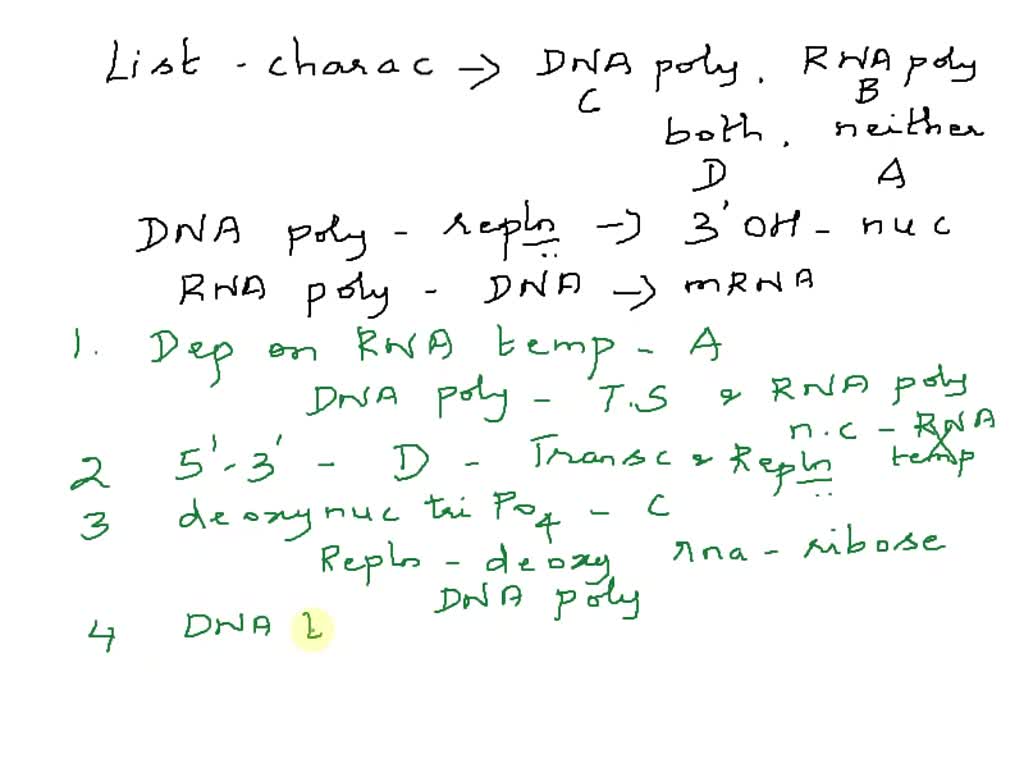 List - charac → DNA poly. RNA poly
C B
both. neither
D A
DNA poly - repln → 3' OH - nuc
RNA poly - DNA → mRNA
1. Dep on RNA temp - A
DNA poly - T.S & RNA poly
n.c - RNA
2 5'-3' - D - Transc & Repln temp
3 deoxynuc tri PO4 - C
Repln - deoxy rna - ribose
DNA poly
4 DNA